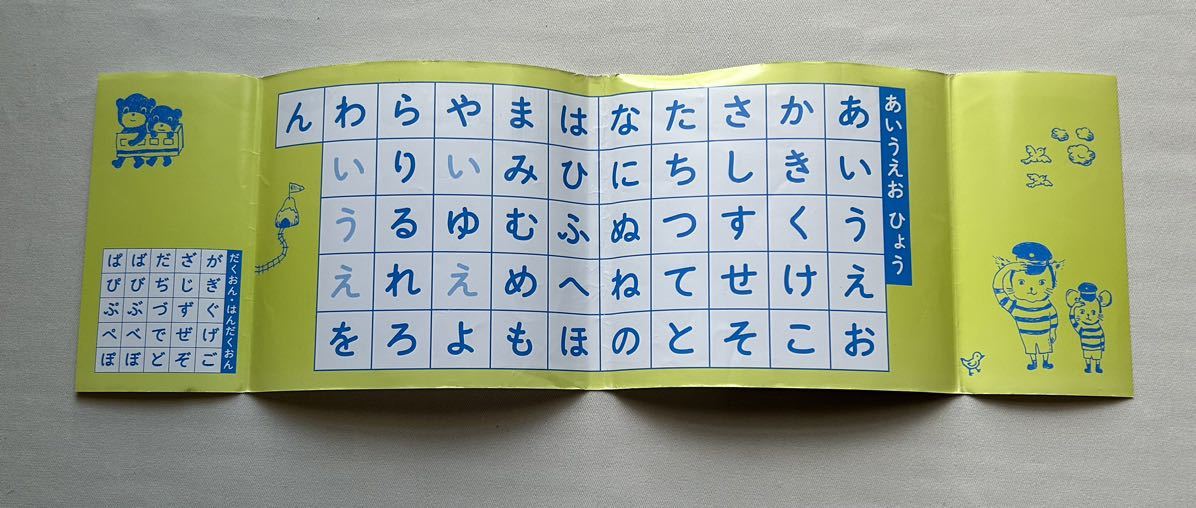 あいうえお ひょう
あいうえお
かきくけこ
さしすせそ
たちつてと
なにぬねの
はひふへほ
まみむめも
やいゆえよ
らりるれろ
わいうえを
ん
だくおん・はんだくおん
がぎぐげご
ざじずぜぞ
だぢづでど
ばびぶべぼ
ぱぴぷぺぽ